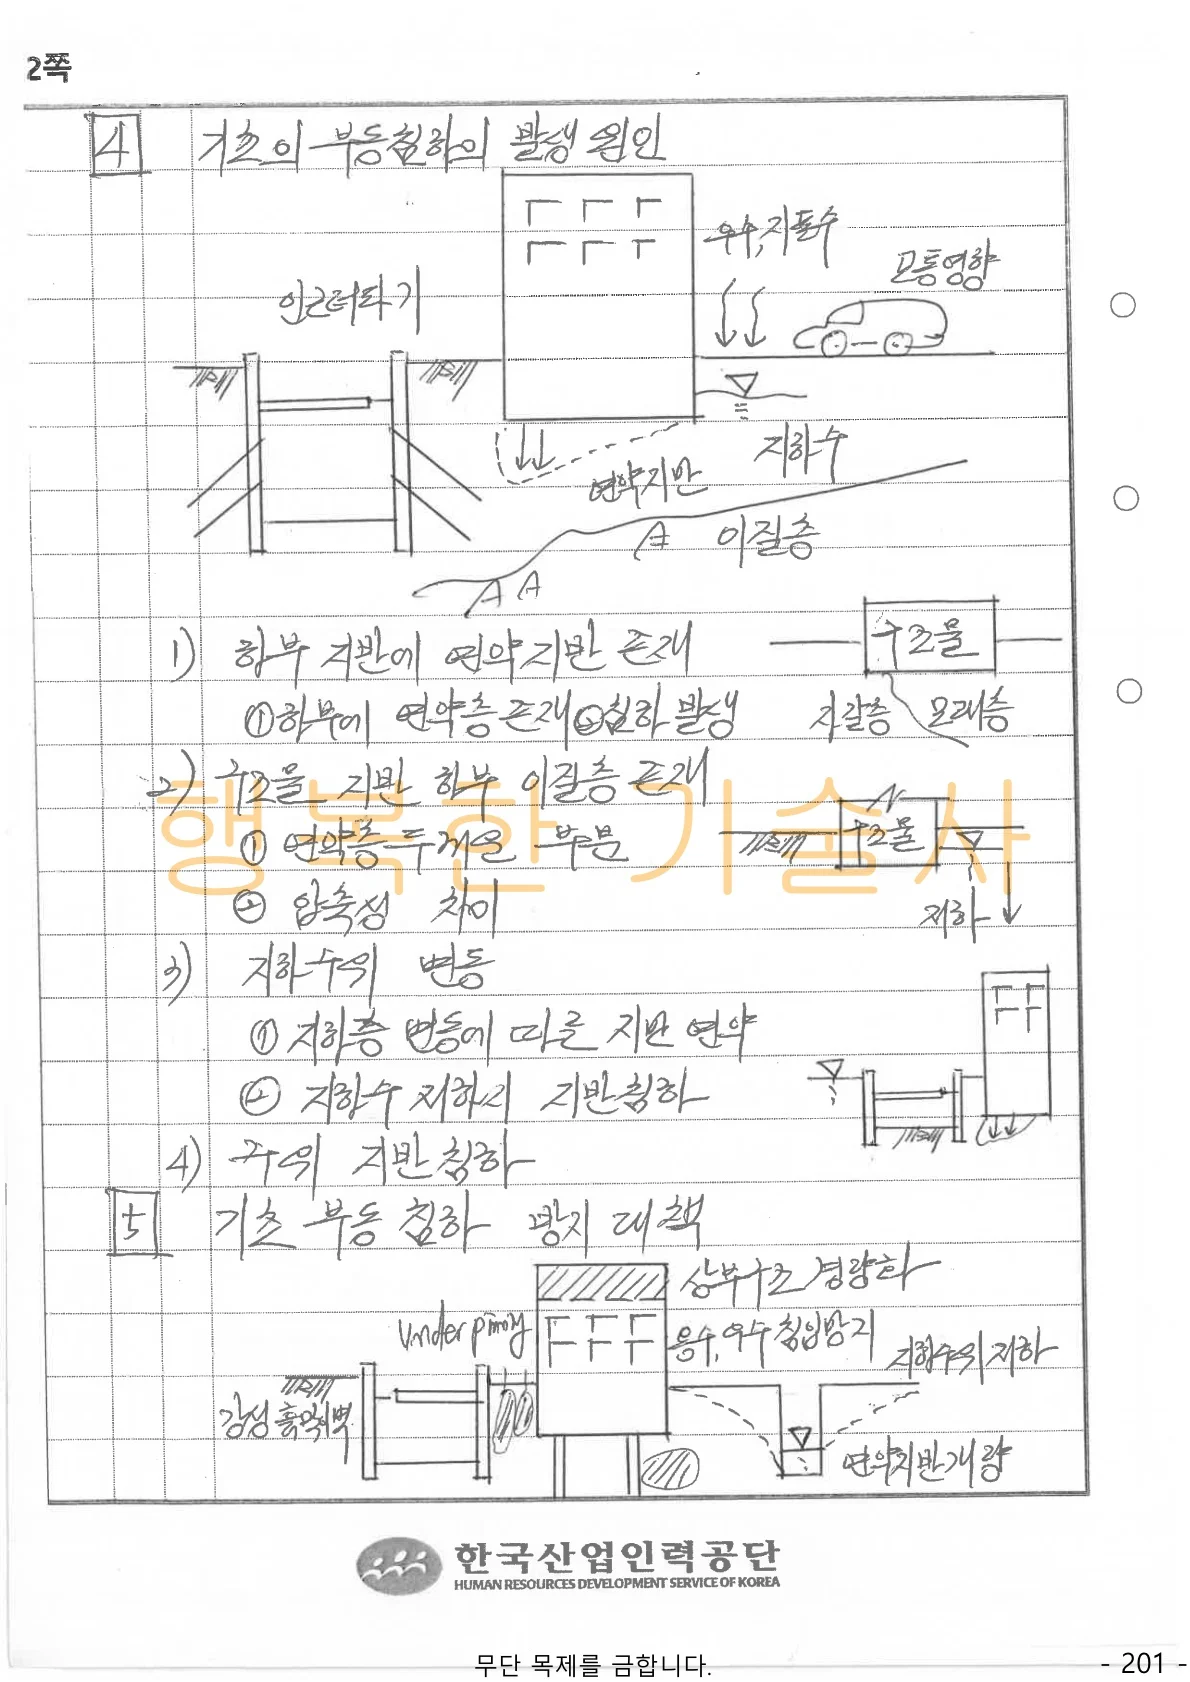 2쪽
4 기초의 부등침하의 발생 원인
우수, 지표수
교통영향
인근터파기
지하수
연약지반
이질층
1) 하부 지반에 연약지반 존재
구조물
① 하부에 연약층 존재 ② 침하 발생
자갈층 모래층
2) 구조물 지반 하부 이질층 존재
행복한기술사
① 연약층 두께 다른 부분
구조물
② 압축성 차이
저하
3) 지하수위 변동
① 지하층 변동에 따른 지반 연약
② 지하수 저하시 지반침하
4) 주위 지반침하
5 기초 부등 침하 방지 대책
상부구조 경량화
underpinning
용수, 우수 침입방지
지하수위 저하
강성 흙막이벽
연약지반개량
한국산업인력공단
HUMAN RESOURCES DEVELOPMENT SERVICE OF KOREA
무단 목제를 금합니다.
- 201 -